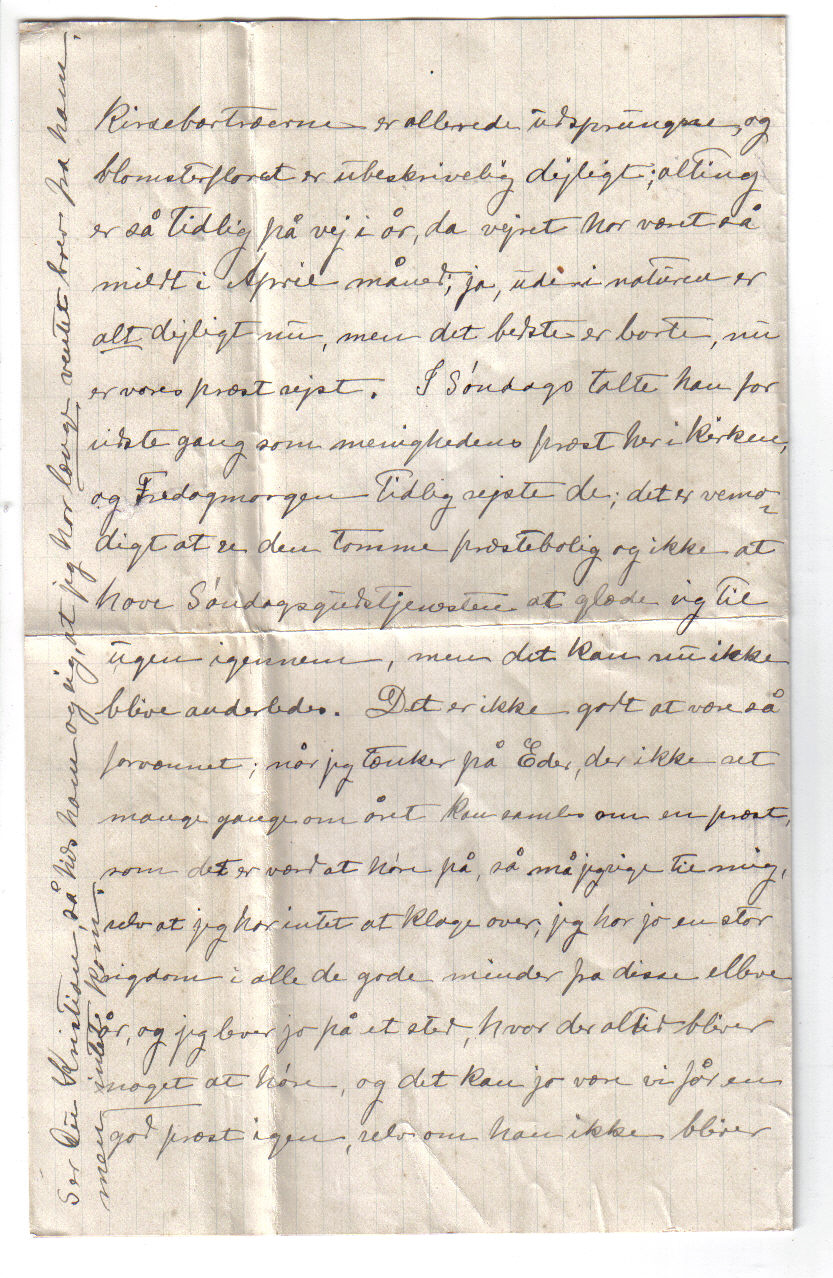 Kirsebærtræerne er allerede udsprungne, og
blomsterfloret er ubeskrivelig dejligt; alting
er så tidlig på vej i år, da vejret har været så
mildt i April måned; ja, ude i naturen er
alt dejligt nu, men det bedste er borte, nu
er vores præst rejst. I Søndags talte han for
sidste gang som menighedens præst her i kirken,
og Fredagmorgen tidlig rejste de; det er vemo-
digt at se den tomme præstebolig og ikke at
have Søndagsgudstjenesten at glæde sig til
ugen igennem, men det kan nu ikke
blive anderledes. Det er ikke godt at være så
forvænnet; når jeg tænker på Eder, der ikke ret
mange gange om året kan samles om en præst,
som det er værd at høre på, så må jeg sige til mig
selv at jeg har intet at klage over, jeg har jo en stor
rigdom i alle de gode minder fra disse elleve
år, og jeg lever jo på et sted, hvor der altid bliver
noget at høre, og det kan jo være vi får en
god præst igen, selv om han ikke bliver
Ser Du Kristian, så hils ham og sig, at jeg har længe ventet brev fra ham,
men intet kom.